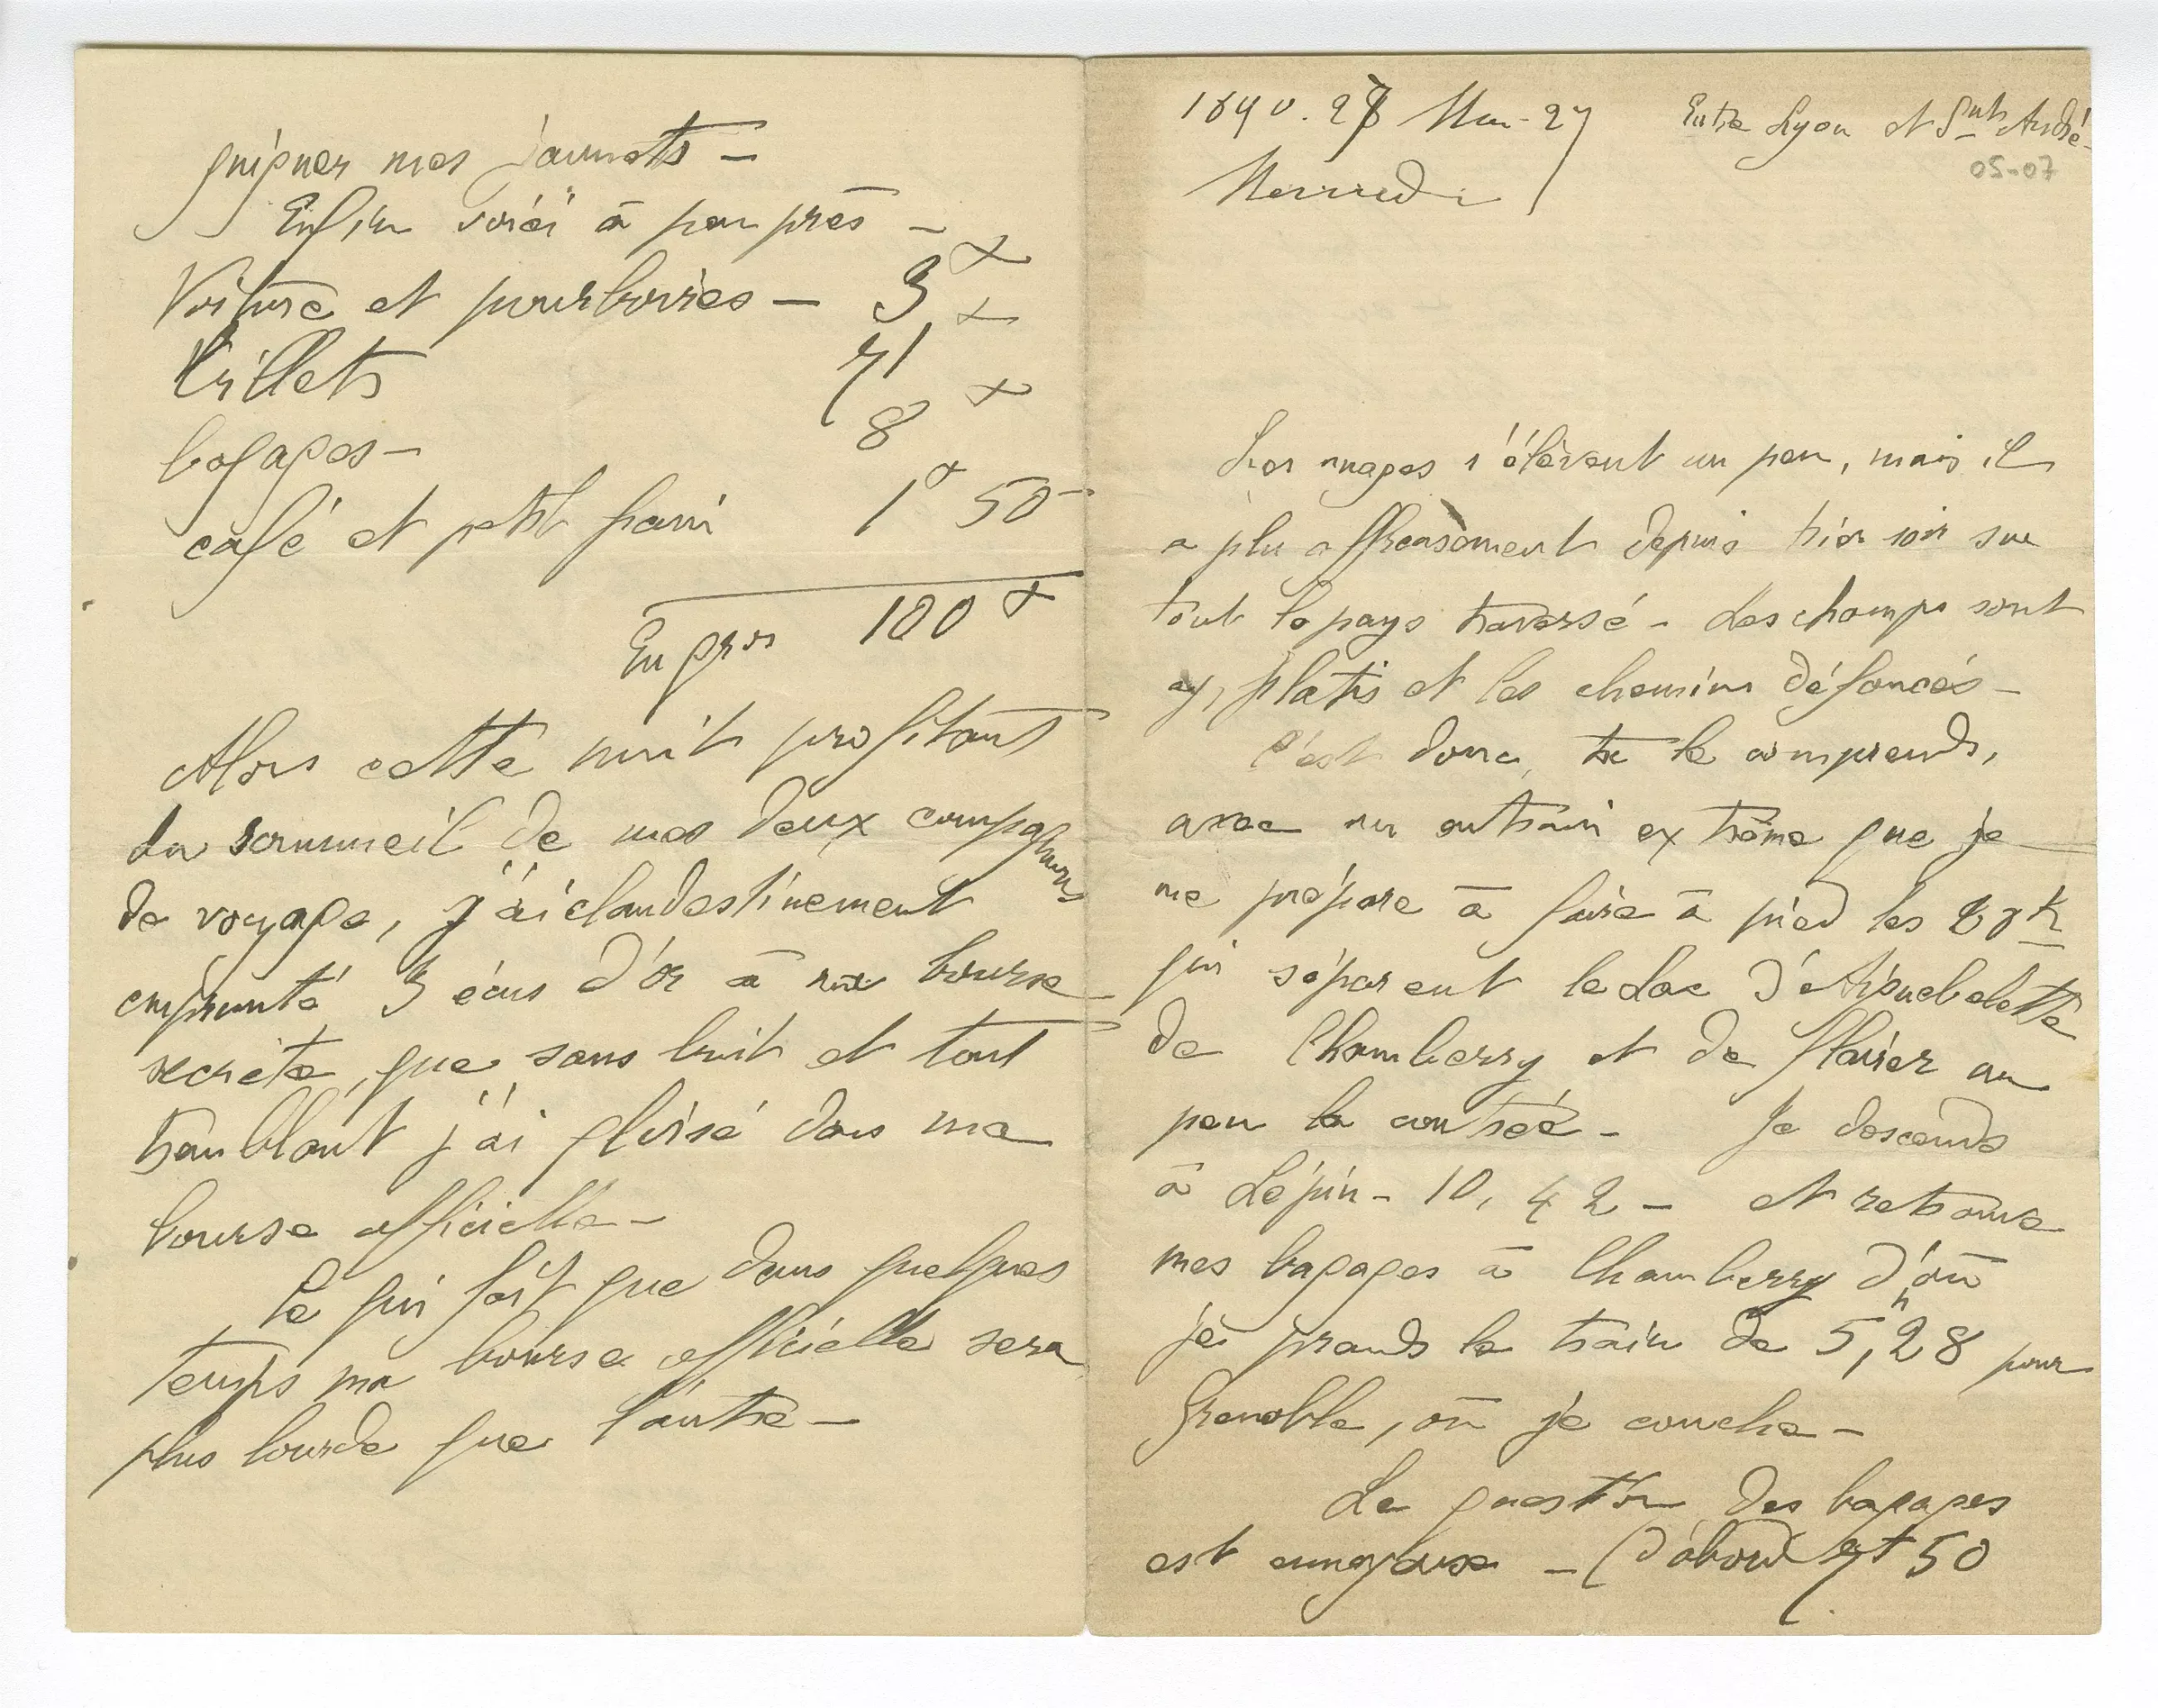 guigner mes jaunets —
Enfin voici à peu près —
Voiture et pourboires — 3 f
billets 71 f
bagages — 8 f
café et petit pain 1 f 50
En gros 100 f
Alors cette nuit profitant
du sommeil de mes deux compagnons
de voyage, j'ai clandestinement
emprunté 3 écus d'or à ma bourse
secrète, que sans bruit et tout
tremblant j'ai glissé dans ma
bourse officielle —
Ce qui fait que dans quelques
temps ma bourse officielle sera
plus lourde que l'autre —
1890. 27 Mai - 27
Mercredi
Entre Lyon et St André -
05-07
Les nuages s'élèvent un peu, mais il
a plu affreusement depuis hier soir sur
tout le pays traversé - Les champs sont
aplatis et les chemins défoncés —
C'est donc, tu le comprends,
avec un entrain extrême que je
me prépare à faire à pied les 20 k
qui séparent le Lac d'Aiguebelette
de Chamberry et de flairer un
peu la contrée - Je descends
à Lépin - 10, 42 - et retrouve
mes bagages à Chamberry d'où
je prends le train de 5h,28 pour
Grenoble, où je couche —
La question des bagages
est ennuyeuse — (d'abord 7 f 50